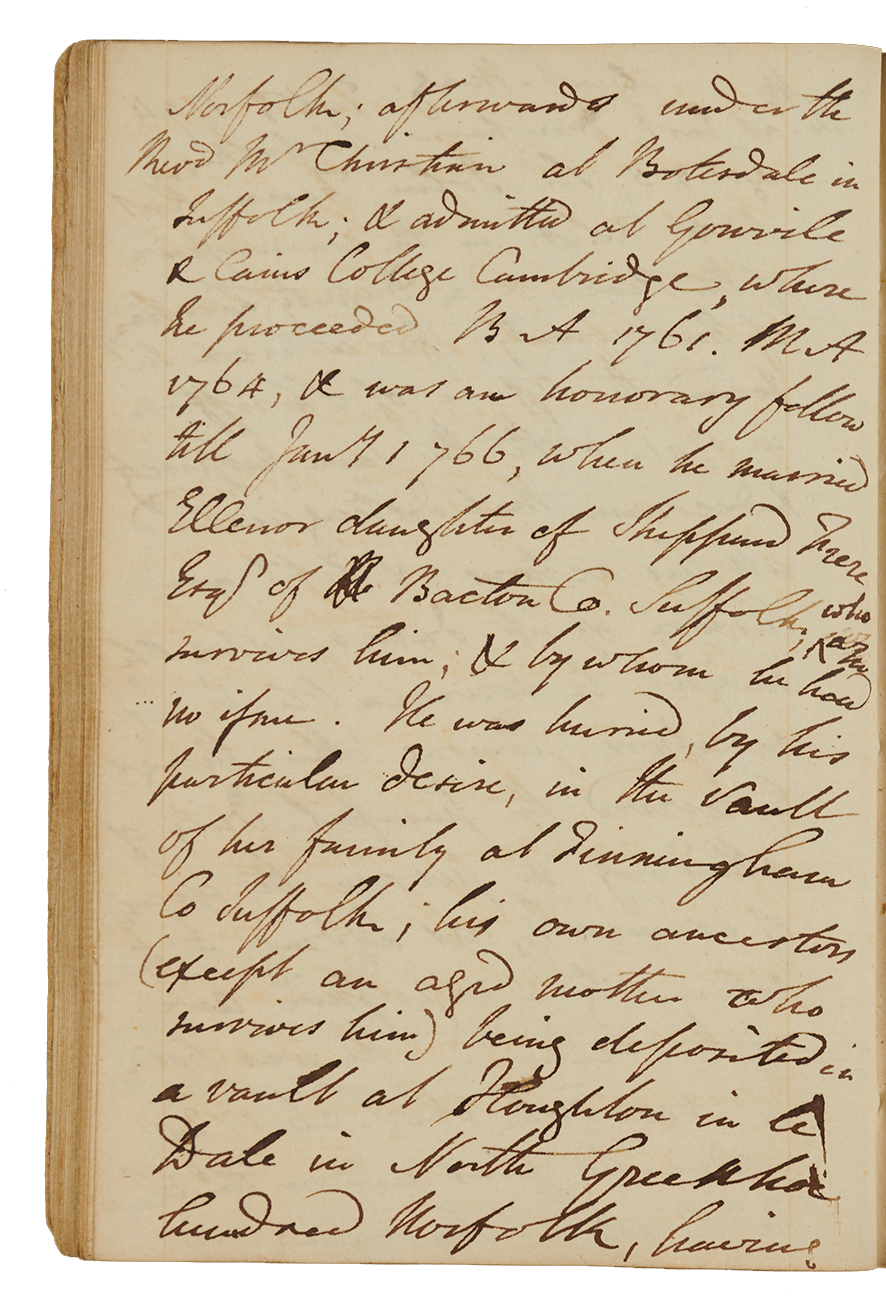 Norfolk; afterwards under the
Revd Mr Christian at Botesdale in
Suffolk; & admitted at Gonvile
& Caius College Cambridge, where
he proceeded B A 1761. M A
1764, & was an honorary fellow
till Jany 1766, when he married
Ellenor daughter of Sheppard Frere
Esqr of Bacton Co. Suffolk, who
survives him; & by whom he had
no issue. He was buried, by his
particular desire, in the Vault
of her family at Finningham
Co Suffolk; his own ancestors
(except an aged mother who
survives him) being deposited in
a vault at Houghton in le
Dale in North Greenhoe
hundred Norfolk, having